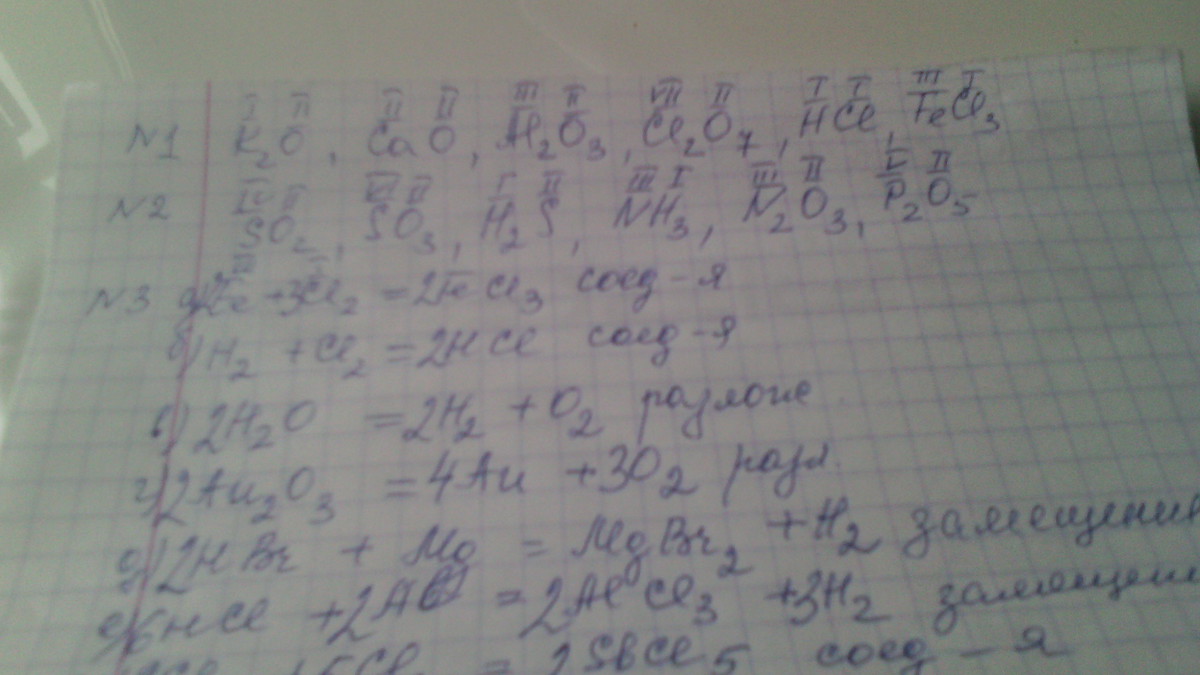 N1 I II K₂O, II II CaO, III II Al₂O₃, VII II Cl₂O₇, I I HCl, III I FeCl₃
N2 IV II SO₂, VI II SO₃, I II H₂S, III I NH₃, III II N₂O₃, V II P₂O₅
N3 а) 2Fe + 3Cl₂ = 2FeCl₃ соед-я
б) H₂ + Cl₂ = 2HCl соед-я
в) 2H₂O = 2H₂ + O₂ разлож
г) 2Au₂O₃ = 4Au + 3O₂ разл.
д) 2HBr + Mg = MgBr₂ + H₂ замещение
е) 6HCl + 2Al = 2AlCl₃ + 3H₂ замещен
+ 5Cl = 2SbCl₅ соед-я